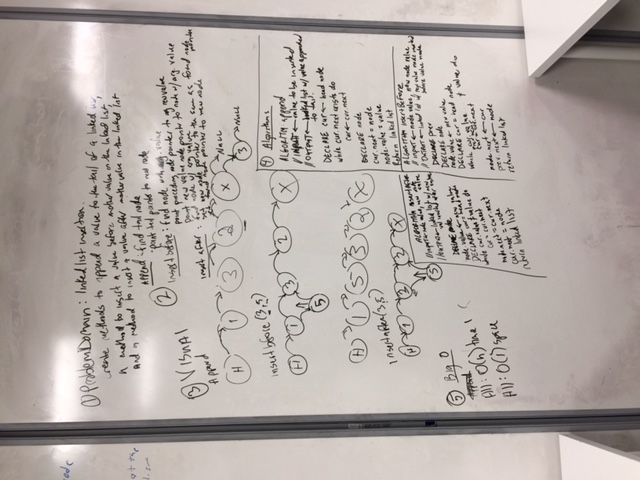 ① Problem Domain: linked list insertion.
create methods to append a value to the tail of a linked list,
a method to insert a value before another value in the linked list,
and a method to insert a value after another value in the linked list
②
Append - find tail node
point tail pointer to new node
insert before: find node with arg. value
point preceding node pointer to new value
point new value node pointer to node w/ arg value
insert after: find node w/ arg value
set new node pointer to the same as found node pointer
set found node pointer to new node
③ Visual
Append
H 1 3 2 X NULL
3 NULL
insertbefore(3,5)
H 1 3 2 X
5
H 1 5 3 2 X
insertafter(3,5)
H 1 2 2 X
5
④ Algorithms
ALGORITHM append
// INPUT ← value to be inserted
// OUTPUT ← linked list w/ value appended
to tail.
DECLARE cur ← head node
while cur.next exists do
cur ← cur.next
DECLARE node
cur.next = node
node.value = value
return linked list
ALGORITHM insertBefore
// input ← node value, new node value
// OUTPUT ← linked list w/ new value node inserted
before value node
DECLARE prev
DECLARE node
node.value ← new value
DECLARE cur = head node
while cur.value ≠ value do
cur = cur.next
node.next ← cur
prev.next ← node
return linked list
ALGORITHM insertAfter
// input ← node value, new node value
// OUTPUT ← linked list w/ new
val inserted after value
DECLARE node
node.value = new value
DECLARE cur = head node
while cur.value ≠ value do
cur = cur.next
node.next = cur.next
cur.next = node
return linked list
⑤ Big O
All: O(n) time
All: O(1) space